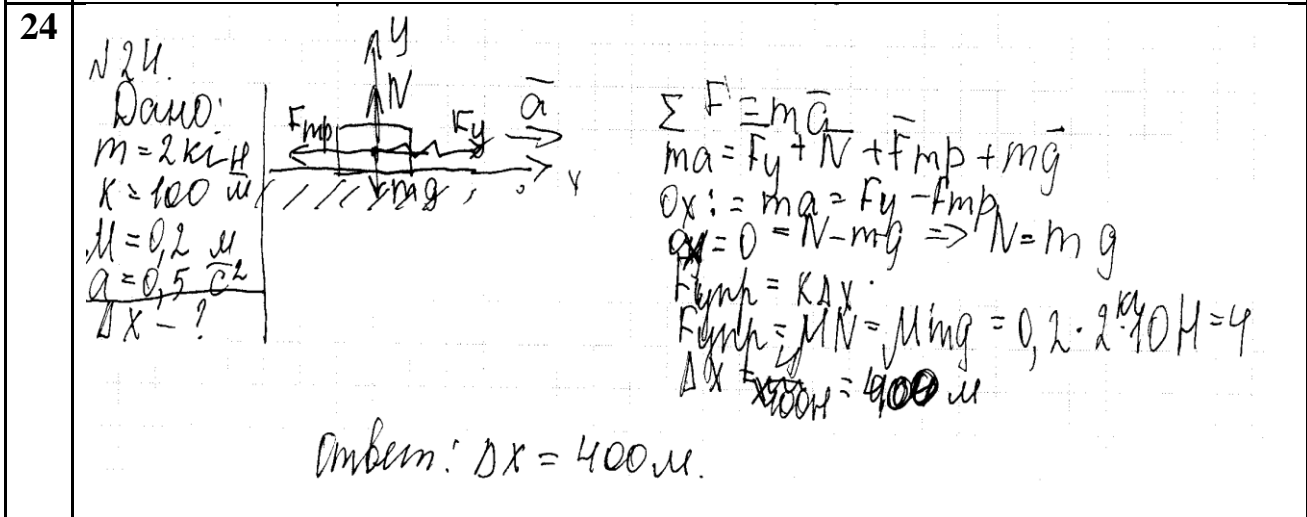 24
N24.
Дано:
m = 2 кг
К = 100 Н/м
М = 0,2
a = 0,5 м/с²
ΔX - ?
y
N
Fтр
Fy
a
mg
x
Σ F = ma
ma = Fy + N + Fтр + mg
Ox: = ma = Fy - Fтр
= 0 = N - mg => N = mg
Fупр = KΔx
Fупр = MN = Mmg = 0,2 · 2 кг · 10 Н = 4
ΔX = 100Н = м
Ответ: ΔX = 400 м.